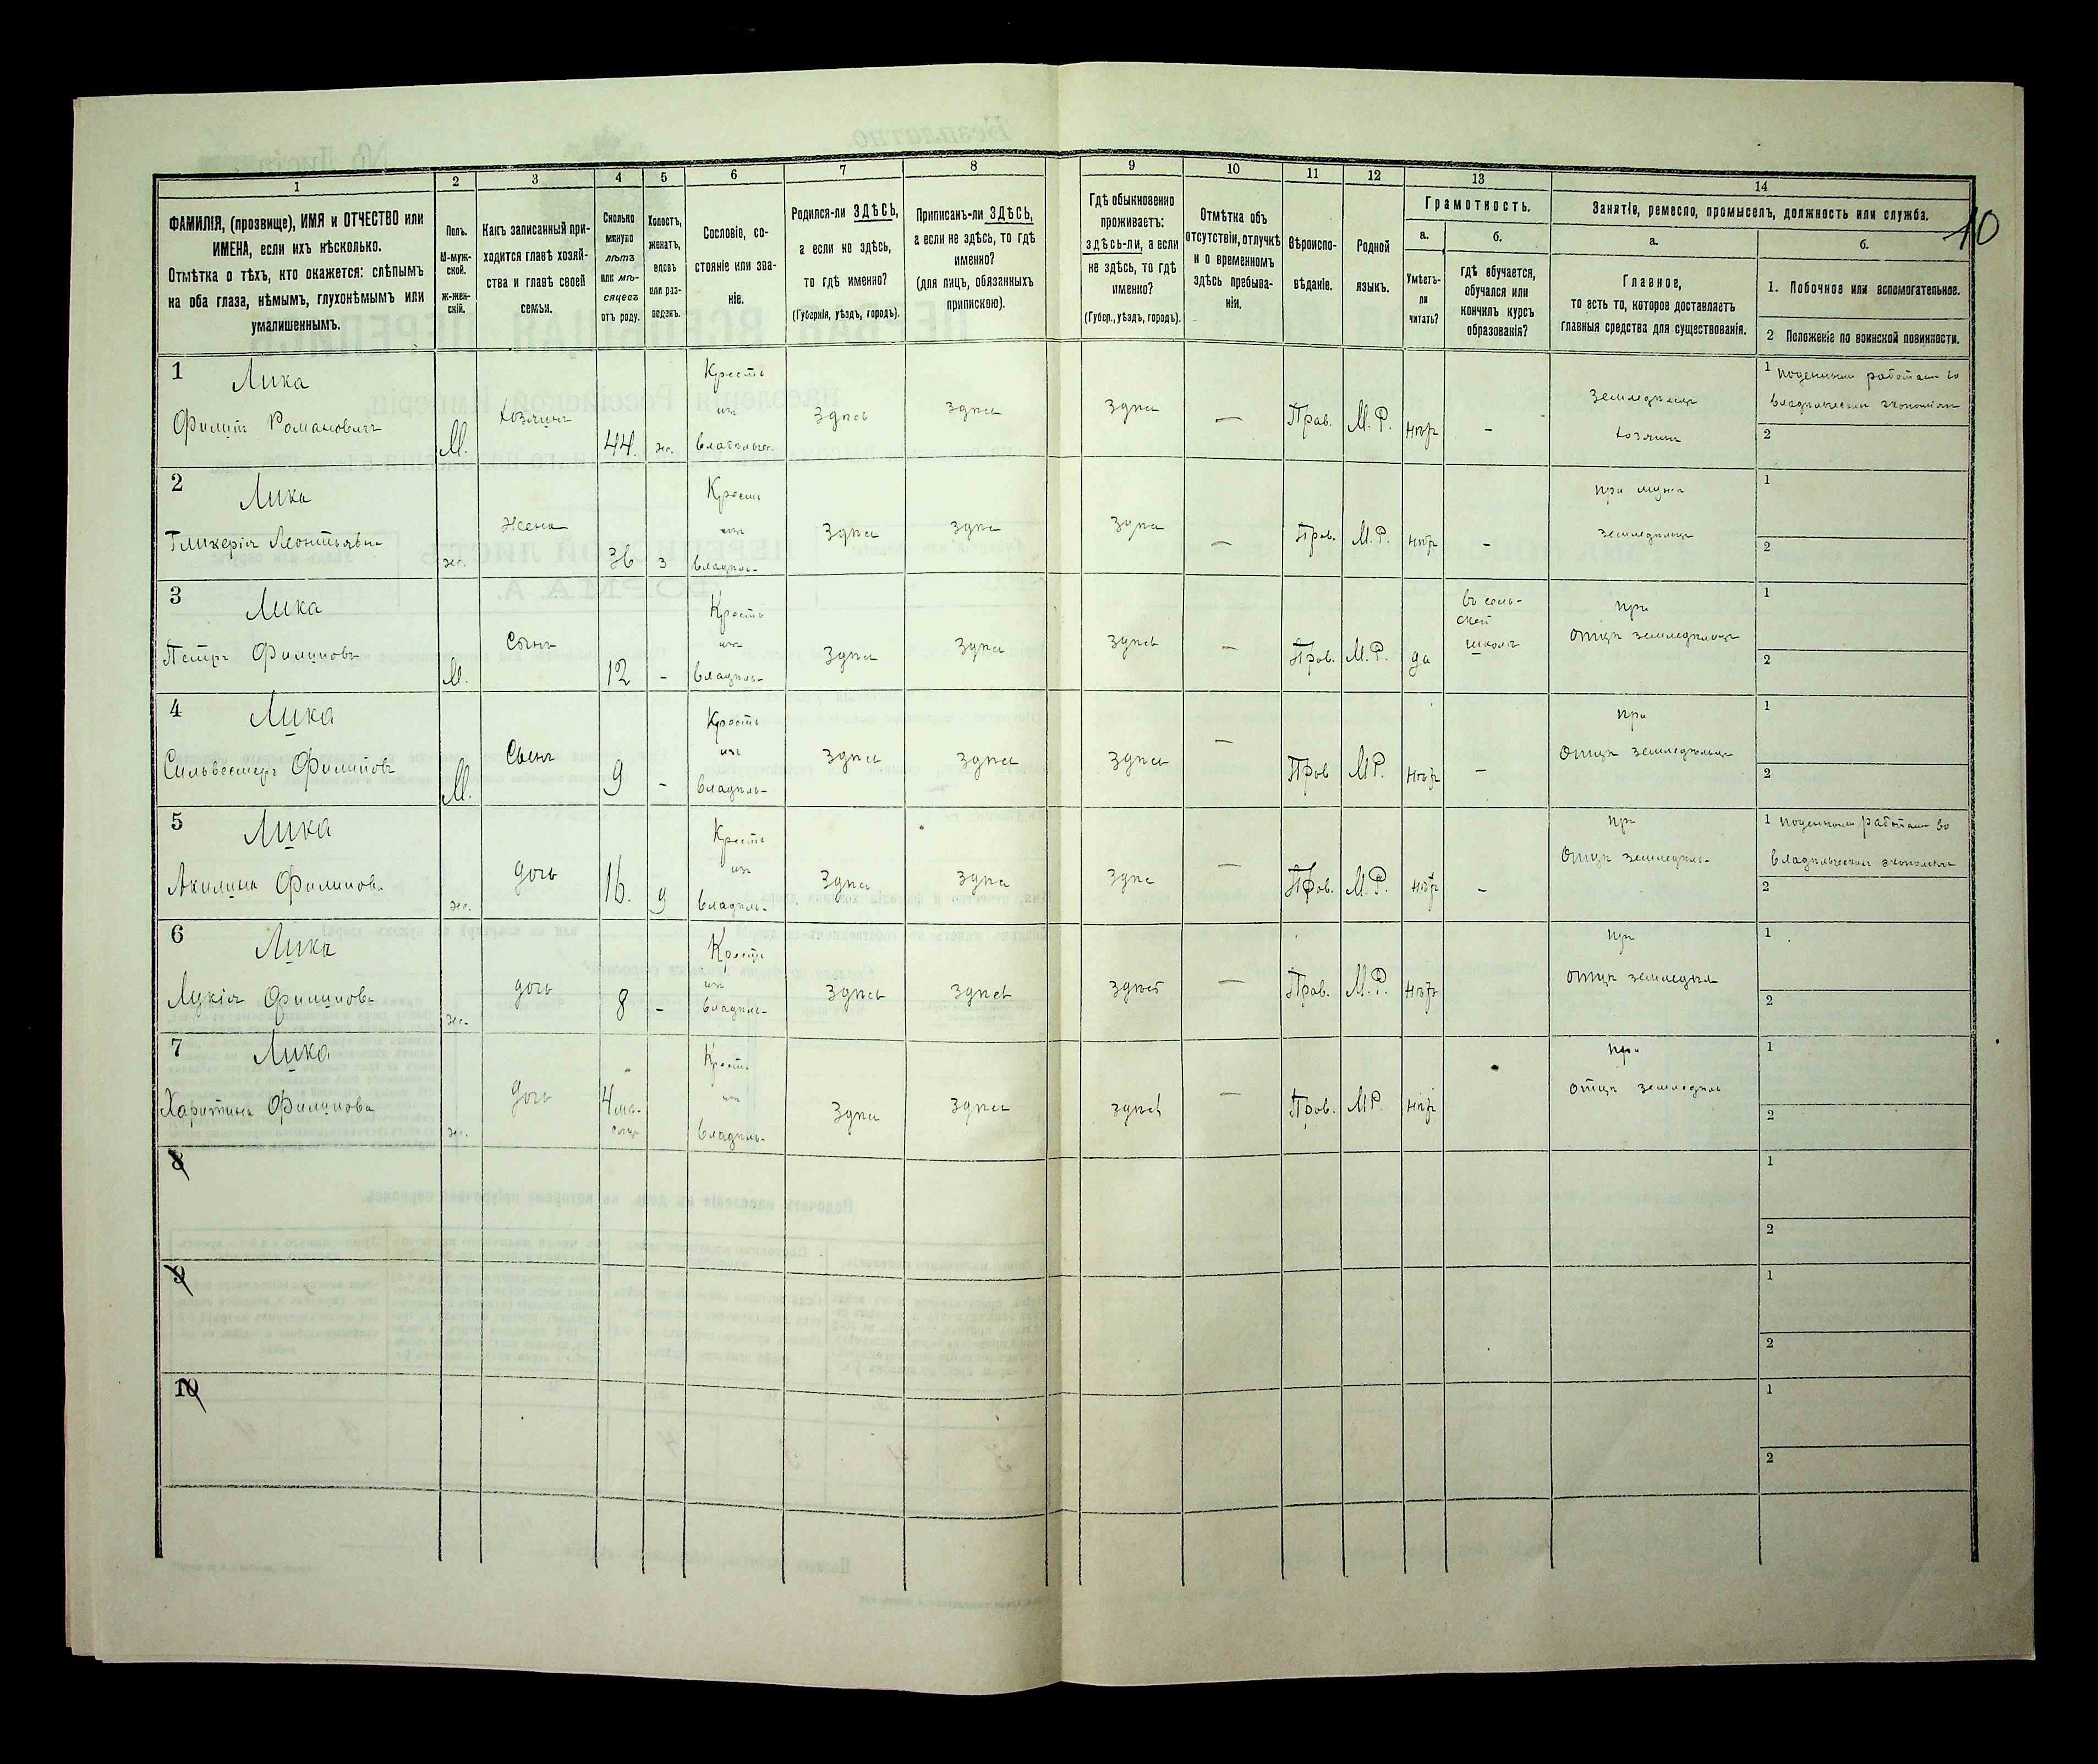 10
1 2 3 4 5 6 7 8 9 10 11 12 13 14
ФАМИЛІЯ, (прозвище), ИМЯ и ОТЧЕСТВО или
ИМЕНА, если ихъ нѣсколько.
Отмѣтка о тѣхъ, кто окажется: слѣпымъ
на оба глаза, нѣмымъ, глухонѣмымъ или
умалишеннымъ.
Полъ.
М-муж-
ской.
Ж-жен-
скій.
Какъ записанный при-
ходится главѣ хозяй-
ства и главѣ своей
семьи.
Сколько
минуло
лѣтъ
или мѣ-
сяцевъ
отъ роду.
Холостъ,
женатъ,
вдовъ
или раз-
веденъ.
Сословіе, со-
стояніе или зва-
ніе.
Родился-ли ЗДѢСЬ,
а если не здѣсь,
то гдѣ именно?
(Губернія, уѣздъ, городъ).
Приписанъ-ли ЗДѢСЬ,
а если не здѣсь, то гдѣ
именно?
(для лицъ, обязанныхъ
припискою).
Гдѣ обыкновенно
проживаетъ:
здѣсь-ли, а если
не здѣсь, то гдѣ
именно?
(Губер., уѣздъ, городъ).
Отмѣтка объ
отсутствіи, отлучкѣ
и о временномъ
здѣсь пребыва-
ніи.
Вѣроиспо-
вѣданіе.
Родной
языкъ.
Грамотность.
а.
Умѣетъ-
ли
читать?
б.
гдѣ обучается,
обучался или
кончилъ курсъ
образованія?
Занятіе, ремесло, промыселъ, должность или служба.
а.
Главное,
то есть то, которое доставляетъ
главныя средства для существованія.
б.
1. Побочное или вспомогательное.
2 Положеніе по воинской повинности.
1 Лика
Филипъ Романовичъ
М. Хозяинъ 44. ж. Крестъ изъ владѣльч. здѣсь здѣсь здѣсь — Прав. М. Р. нѣтъ — земледѣлецъ хозяинъ
1 поденными работами во
владѣльческихъ экономіяхъ
2
2 Лика
Гликерія Леонтьевна
ж. Жена 36 з Крест изъ владѣль- здѣсь здѣсь здѣсь — Прав. М. Р. нѣтъ — при мужѣ земледѣлецъ
1
2
3 Лика
Петръ Филиповъ
М. Сынъ 12 - Крестъ изъ владѣль- здѣсь здѣсь здѣсь — Прав. М. Р. да въ сель-
ской
школѣ
при
отцѣ земледѣлецъ
1
2
4 Лика
Сильвестеръ Филиповъ
М. Сынъ 9 - Крестъ изъ владѣль- здѣсь здѣсь здѣсь — Прав М Р. нѣтъ — при
отцѣ земледѣлецъ
1
2
5 Лика
Акилина Филипов.
ж. дочь 16. д Крестъ изъ владѣль- здѣсь здѣсь здѣсь — Прав. М. Р. нѣтъ — при
отцѣ земледѣль-
1 поденными работами во
владѣльческихъ экономіяхъ
2
6 Лика
Лукія Филипова
ж. дочь 8 - Крестъ изъ владѣль- здѣсь здѣсь здѣсь — Прав. М. Р. нѣтъ при
отцѣ земледѣл
1
2
7 Лика
Харитина Филипова
ж. дочь 4 мѣ-
сяца
Крест. изъ владѣль- здѣсь здѣсь здѣсь — Прав. М Р. нѣтъ при
отцѣ земледѣль
1
2
8
1
2
9
1
2
10
1
2